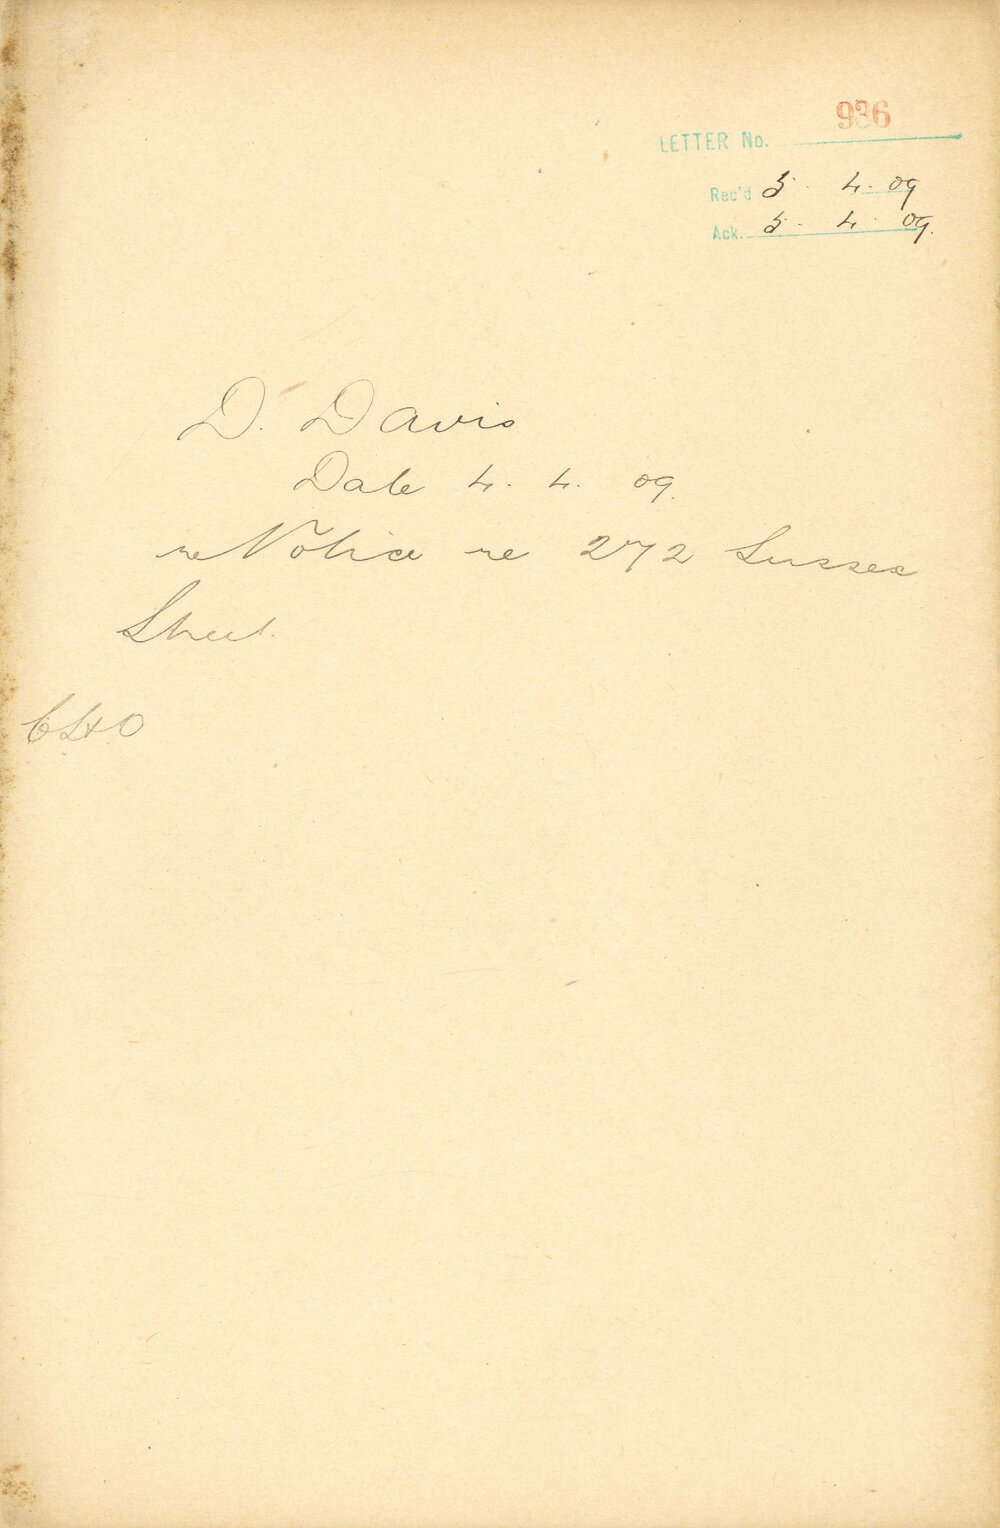 936
LETTER No.
Rec'd 5. 4. 09
Ack. 5. 4. 09.
D. Davis
Date 4. 4. 09.
re Notice re 272 Sussex
Street.